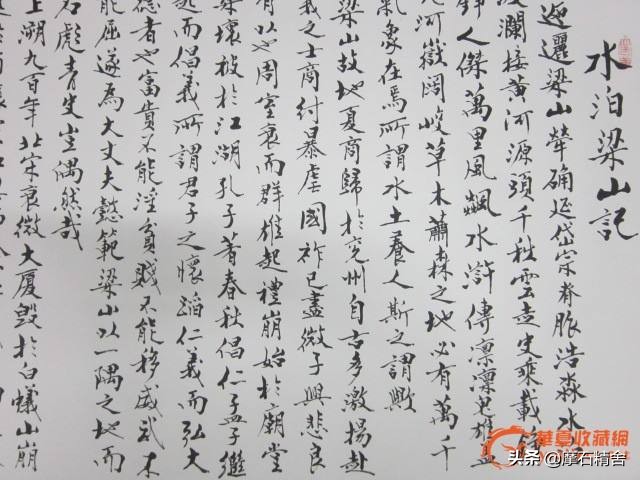 水泊梁山記
迤邐梁山犖确延岱宗脊脈浩淼水
波瀾接黃河源頭千秋雲走史乘載
錚人傑萬里風飄水滸傳凛凛忠雄
九河嶽闊峻草木蕭森之地必有萬千
氣象在焉所謂水土養人斯之謂歟
梁山故地夏商歸於兗州自古多激揚赴
義之士商紂暴虐國祚已盡微子興悲良
有以也周室衰而群雄起禮崩始於廟堂
樂壞被於江湖孔子著春秋倡仁孟子繼
而倡義所謂君子之懷蹈仁義而弘大
德者也富貴不能淫貧賤不能移威武不
能屈遂為大丈夫懿範梁山以一隅之地而
名彪青史豈偶然哉
上溯九百年北宋衰微大廈毀於白蟻山崩
華夏收藏網
头条 @摩石精舍